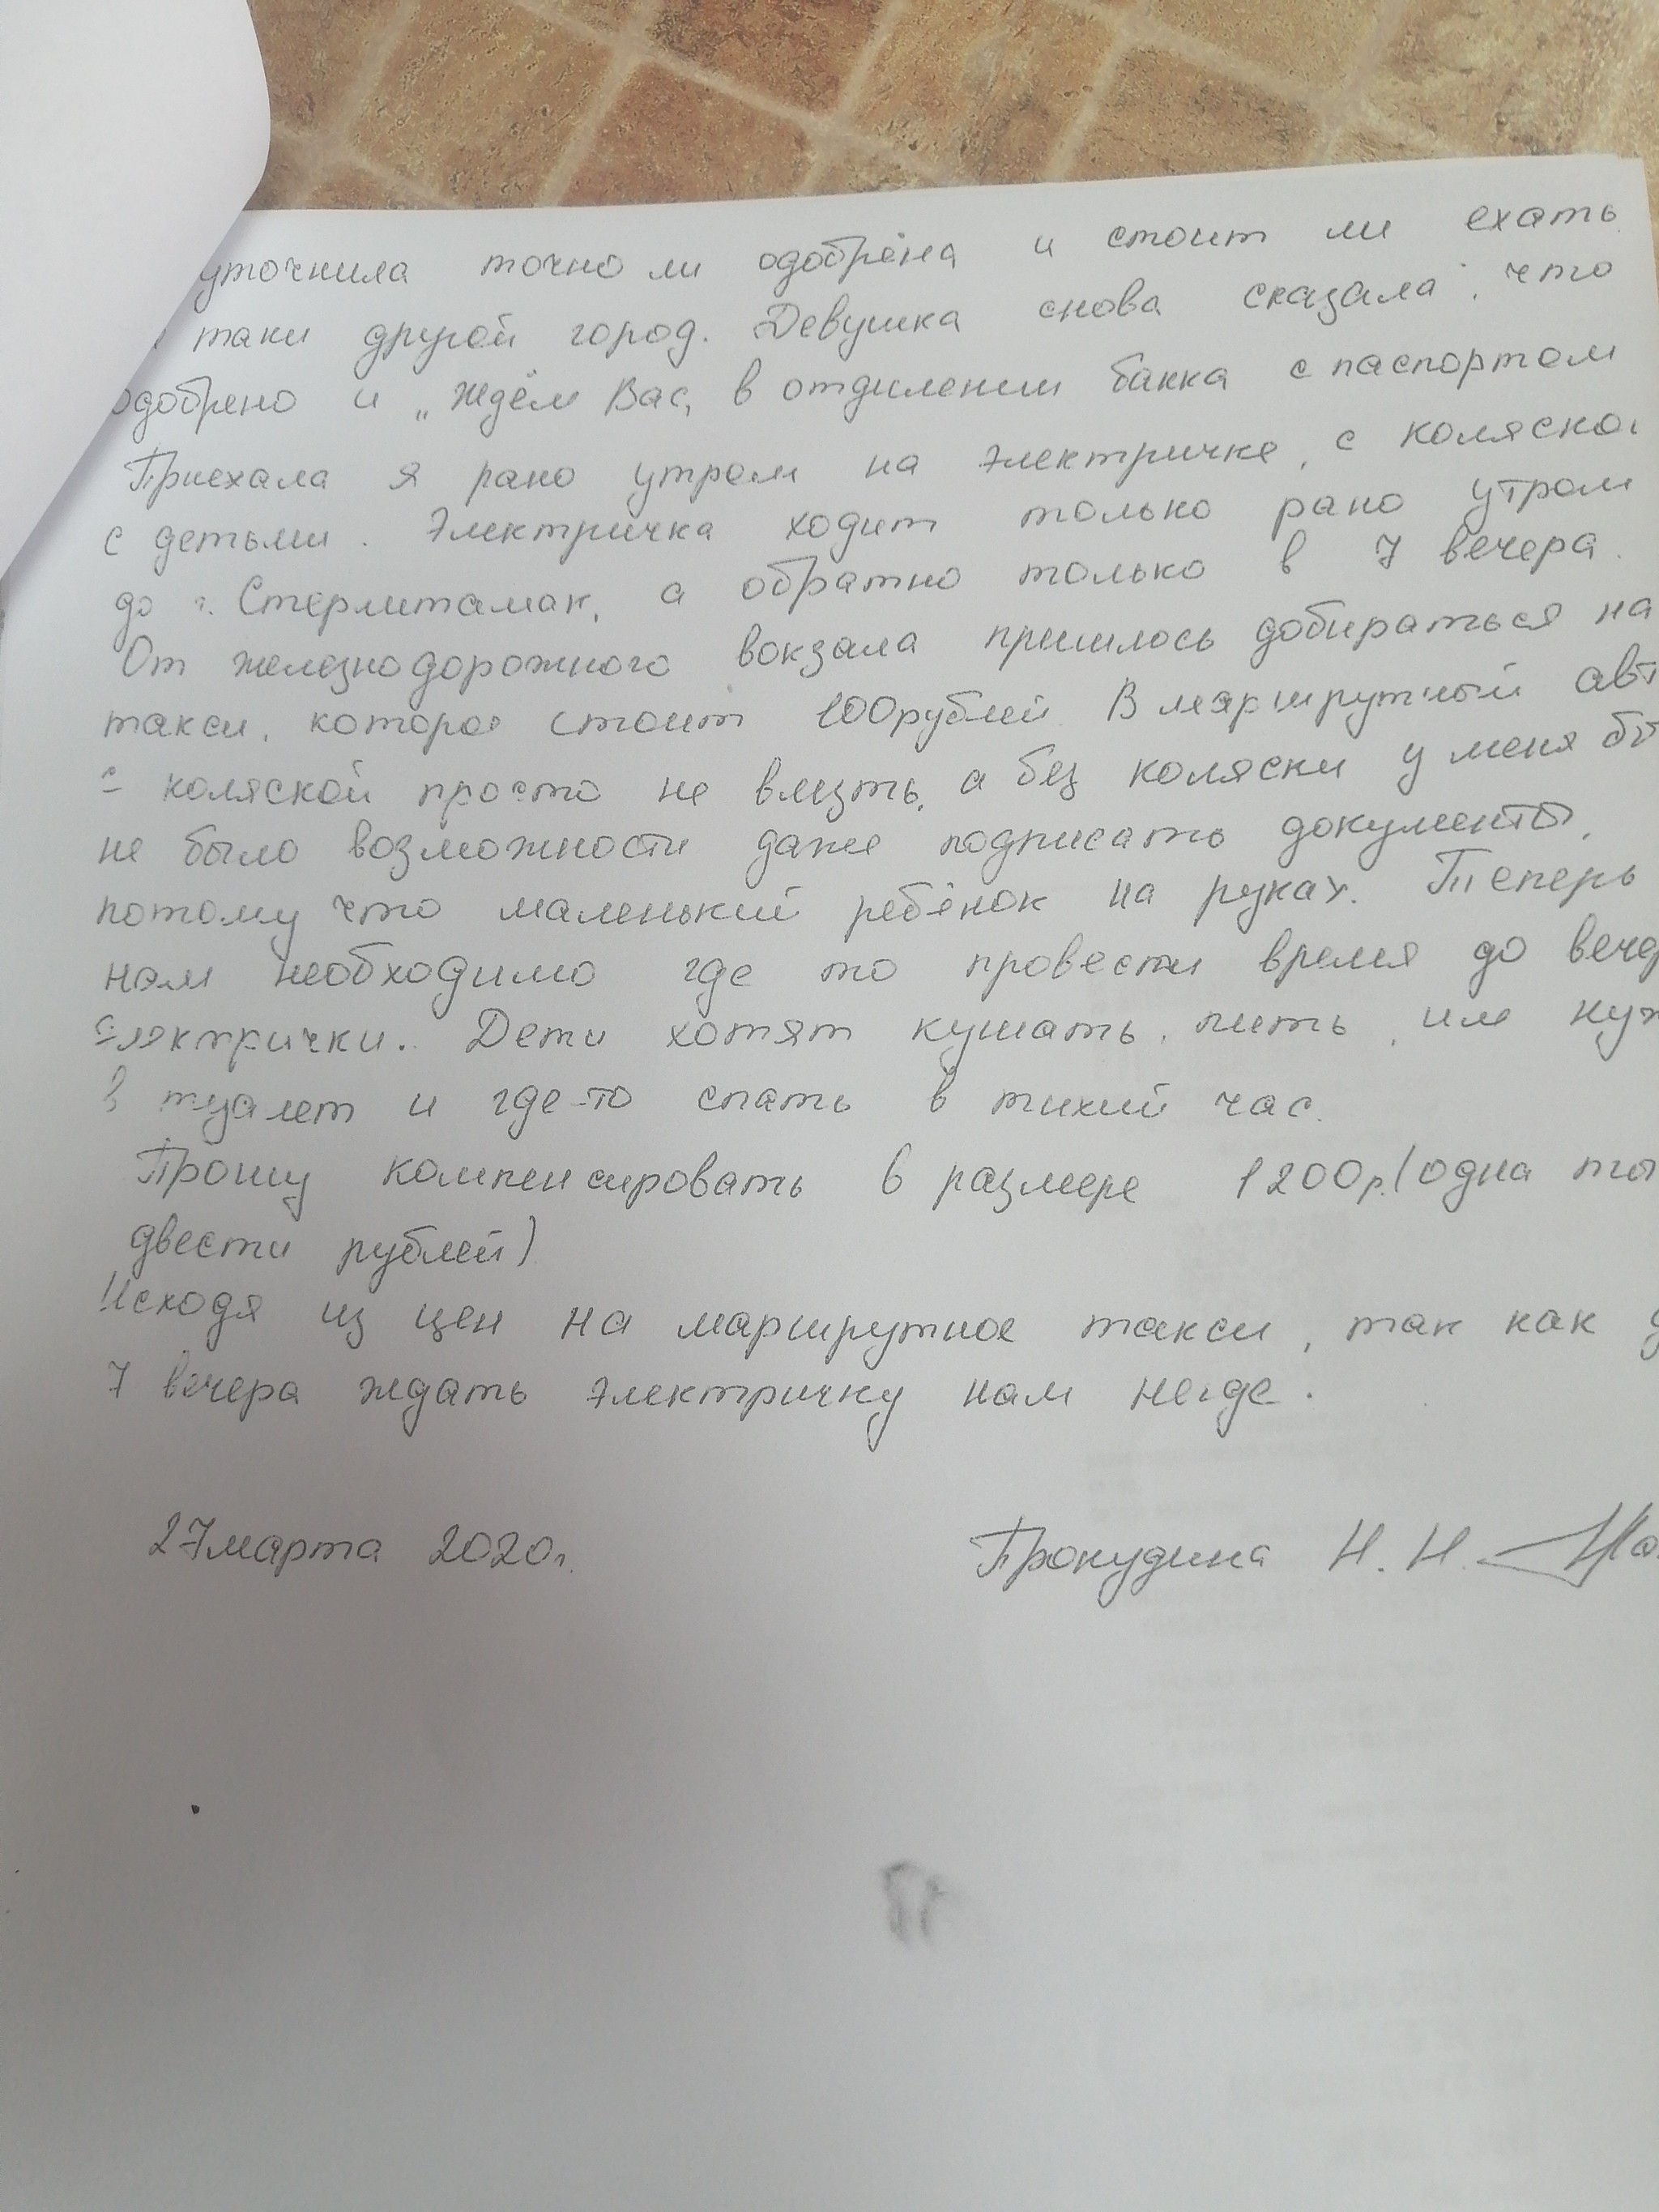 уточнила точно ли одобрена и стоит ли ехать
таки другой город. Девушка снова сказала, что
одобрено и „Ждём Вас, в отдилении банка с паспортом
Приехала я рано утром на электричке, с коляской
с детьми. Электричка ходит только рано утром
до г. Стерлитамак, а обратно только в 7 вечера.
От железнодорожного вокзала пришлось добираться на
такси, которое стоит 100рублей. В маршрутный авт
с коляской просто не влезть, а без коляски у меня бы
не было возможности даже подписать документы,
потому что маленький ребёнок на руках. Теперь
нам необходимо где то провести время до вечер
электрички. Дети хотят кушать, пить, им нуж
в туалет и где-то спать в тихий час.
Прошу компенсировать в размере 1200р.(одна ты
двести рублей)
Исходя из цен на маршрутное такси, так как д
7 вечера ждать электричку нам негде.
27марта 2020г. Прокудина Н. Н.